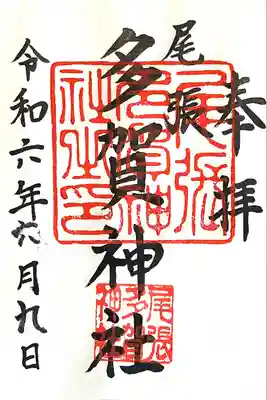 奉拝
尾張
多賀神社
令和六年 月九日
尾張
多賀神
社之印
尾張
多賀
神社